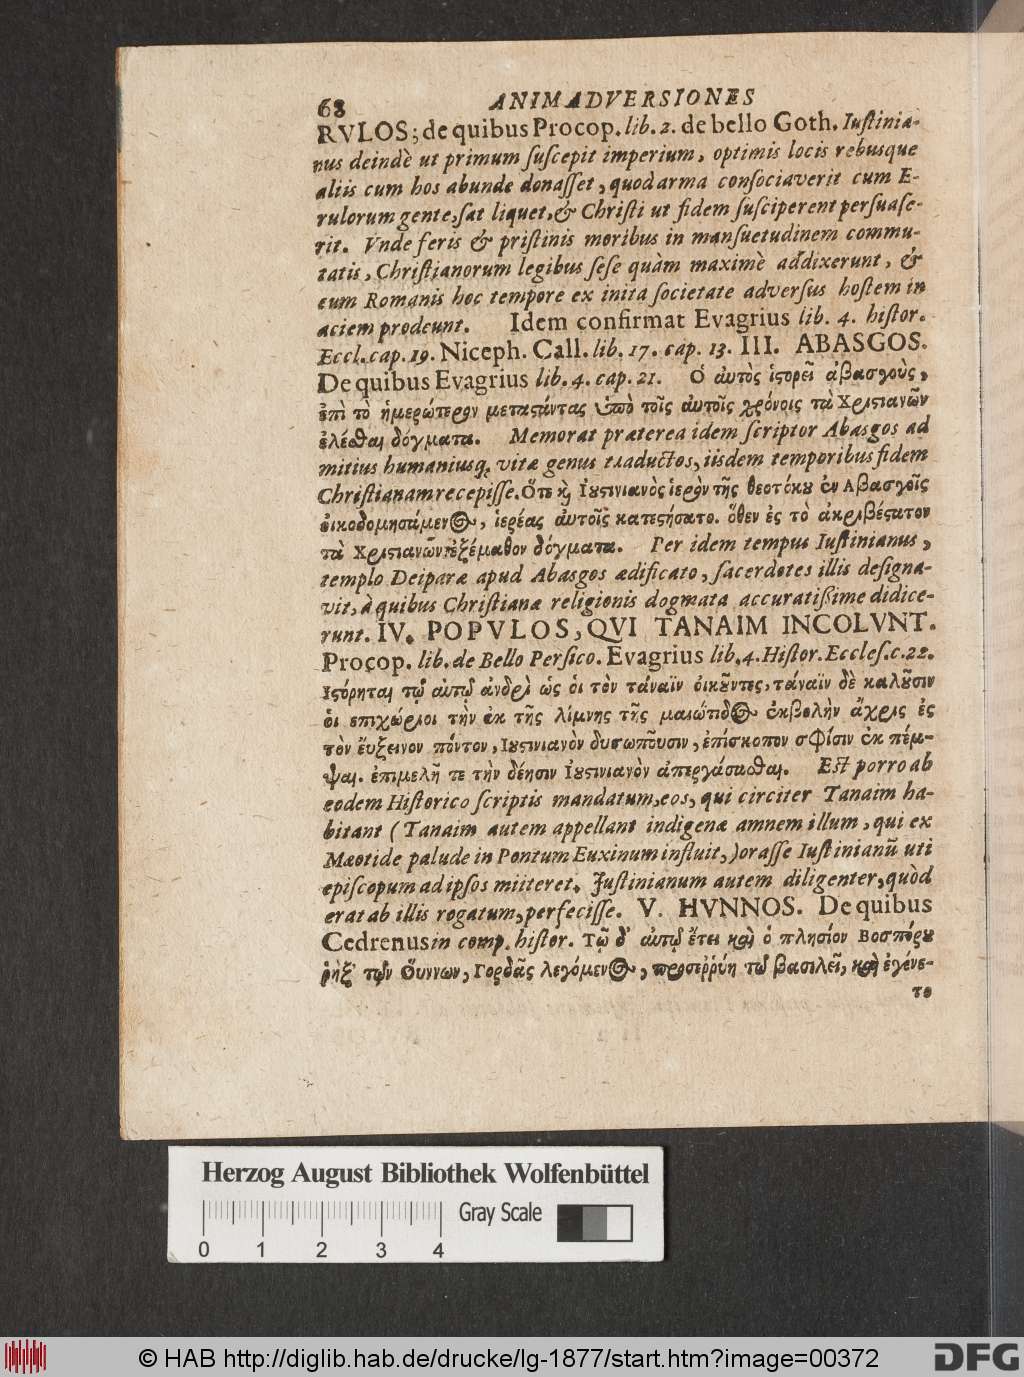 68 ANIMADVERSIONES
RVLOS; de quibus Procop. lib. 2. de bello Goth. Iuſtinia-
nus deindè ut primum ſuſcepit imperium, optimis locis rebusque
aliis cum hos abunde donaſſet, quod arma conſociaverit cum E-
rulorum gente, ſat liquet, & Chriſti ut fidem ſuſciperent perſuaſe-
rit. Vnde feris & priſtinis moribus in manſuetudinem commu-
tatis, Chriſtianorum legibus ſeſe quàm maximè addixerunt, &
cum Romanis hoc tempore ex inita ſocietate adverſus hoſtem in
aciem prodeunt. Idem confirmat Evagrius lib. 4. hiſtor.
Eccl. cap. 19. Niceph. Call. lib. 17. cap. 13. III. ABASGOS.
De quibus Evagrius lib. 4. cap. 21. Ὁ αὐτὸς ἱϛορεῖ ἀβασγοὺς,
ἐπὶ τὸ ἡμερώτερον μεταϛάντας ὑπὸ τοῖς αὐτοῖς χρόνοις τὰ Χριϛιανῶν
ἑλέσθαι δόγματα. Memorat præterea idem ſcriptor Abasgos ad
mitius humaniusq; vitæ genus traductos, iisdem temporibus fidem
Chriſtianam recepiſſe. Ὅτε κὶ Ἰουϛινιανὸς ἱερὸν τῆς θεοτόκου ἐν Αβασγοῖς
οἰκοδομησάμενος, ἱερέας αὐτοῖς κατεϛήσατο. ὅθεν ἐς τὸ ἀκριβέϛατον
τὰ Χριϛιανῶν ἐξέμαθον δόγματα. Per idem tempus Iuſtinianus,
templo Deiparæ apud Abasgos ædificato, ſacerdotes illis deſigna-
vit, à quibus Chriſtianæ religionis dogmata accuratiſſime didice-
runt. IV. POPVLOS, QVI TANAIM INCOLVNT.
Procop. lib. de Bello Perſico. Evagrius lib. 4. Hiſtor. Eccleſ. c. 22.
Ἱϛόρηται τῷ αὐτῷ ἀνδρὶ ὡς οἱ τὸν τάναϊν οἰκοῦντες, τάναϊν δὲ καλοῦσιν
οἱ ἐπιχώριοι τὴν ἐκ τῆς λίμνης τῆς μαιώτιδος ἐκβολὴν ἄχρις ἐς
τὸν ἔυξεινον πόντον, Ἰουϛινιανὸν δυσωποῦσιν, ἐπίσκοπον σφίσιν ἐκ πέμ-
ψαι. ἐπιμελῆ τε τὴν δέησιν Ἰουϛινιανὸν ἀπεργάσασθαι. Eſt porro ab
eodem Hiſtorico ſcriptis mandatum, eos, qui circiter Tanaim ha-
bitant (Tanaim autem appellant indigenæ amnem illum, qui ex
Mæotide palude in Pontum Euxinum influit,) oraſſe Iuſtinianū uti
epiſcopum ad ipſos mitteret. Juſtinianum autem diligenter, quòd
erat ab illis rogatum, perfeciſſe. V. HVNNOS. De quibus
Cedrenus in comp. hiſtor. Τῷ δ' αὐτῷ ἔτει καὶ ὁ πλησίον Βοσπόρου
ῥὴξ τῶν Οὔννων, Γορδᾶς λεγόμενος, προσερρύη τῷ βασιλεῖ, καὶ ἐγένε-
το
Herzog August Bibliothek Wolfenbüttel
Gray Scale
0 1 2 3 4
© HAB http://diglib.hab.de/drucke/lg-1877/start.htm?image=00372
DFG